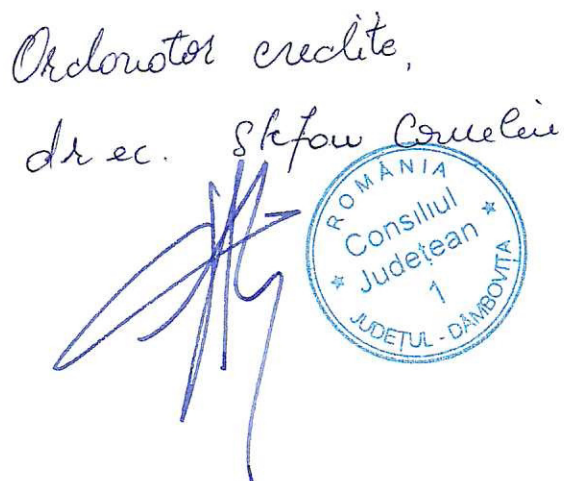 Ordonator credite,
dr ec. Ștefan Corneliu
ROMÂNIA
Consiliul
Județean
1
JUDEȚUL - DÂMBOVIȚA